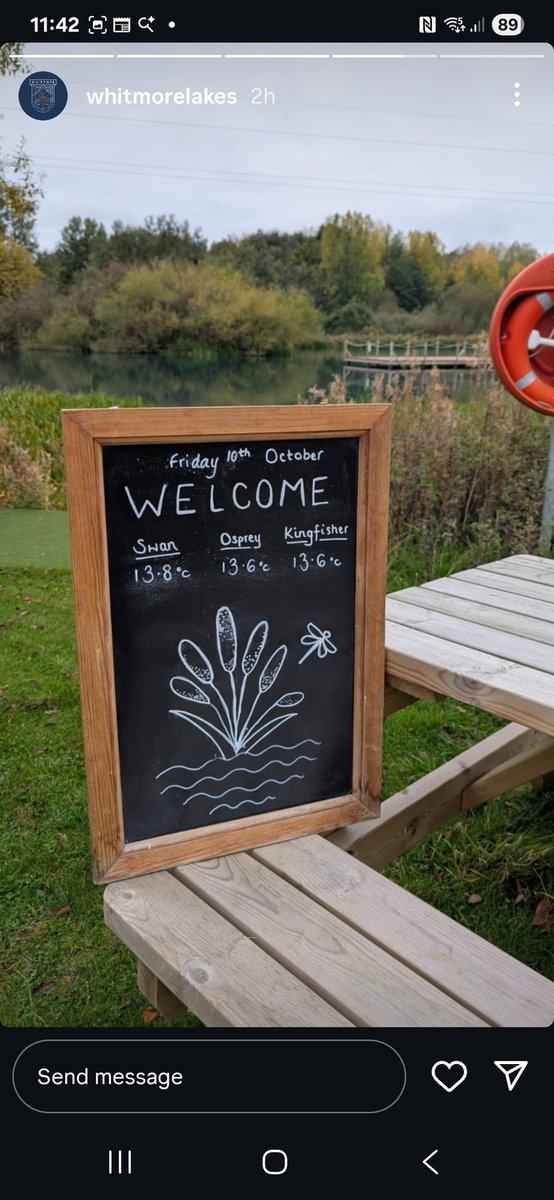 11:42
89
whitmorelakes 2h
Friday 10th October
WELCOME
Swan Osprey Kingfisher
13.8°C 13.6°C 13.6°C
Send message